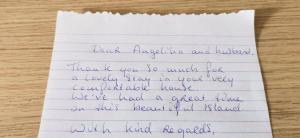 Dear Angelina and husband.
Thank you so much for
a lovely stay in your very
comfortable house.
We've had a great time
on this beautiful island
With kind regards,